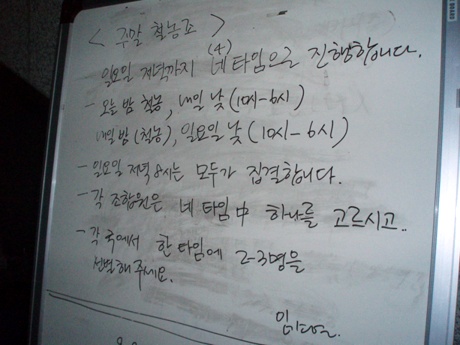 < 주말 철농조 >
- 일요일 저녁까지 네(4)타임으로 진행합니다.
- 오늘 밤 철농, 내일 낮(10시-6시)
내일 밤(철농), 일요일 낮(10시-6시)
- 일요일 저녁 8시는 모두가 집결합니다.
- 각 조합원은 네 타임 中 하나를 고르시고..
- 각 국에서 한 타임에 2-3명을
선별해 주세요.